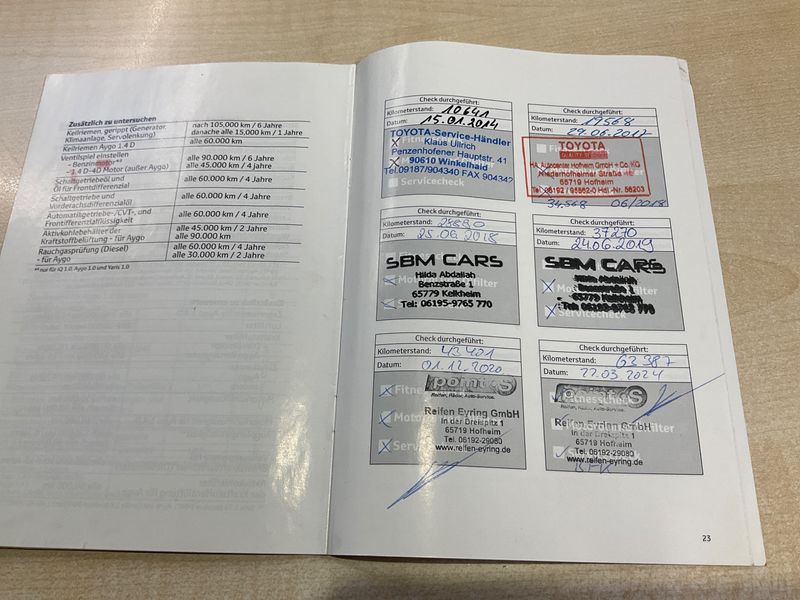 Zusätzlich zu untersuchen
Keilriemen, gerippt (Generator, Klimaanlage, Servolenkung)
nach 105,000 km / 6 Jahre
danache alle 15,000 km / 1 Jahre
Keilriemen Aygo 1.4 D
alle 60.000 km
Ventilspiel einstellen
- Benzinmotor**
- 1.4 D-4D Motor (außer Aygo)
alle 90.000 km / 6 Jahre
alle 45.000 km / 4 jahre
Schaltgetriebeöl und
Öl für Frontdifferenzial
alle 60.000 km / 4 Jahre
Schaltgetriebe und
Vorderachsdifferenzialöl
alle 60.000 km / 4 Jahre
Automatikgetriebe-/CVT-, und
Frontdifferenzialflüssigkeit
alle 60.000 km / 4 Jahre
Aktivkohlebehälter der
Kraftstoffbelüftung - für Aygo
alle 45.000 km / 2 Jahre
alle 90.000 km
Rauchgasprüfung (Diesel)
- für Aygo
alle 60.000 km / 4 Jahre
alle 30.000 km / 2 Jahre
** nur für iQ 1.0, Aygo 1.0 und Yaris 1.0
Check durchgeführt:
Kilometerstand: 10641
Datum: 15.01.2014
TOYOTA-Service-Händler
Klaus Ullrich
Penzenhofener Hauptstr. 41
90610 Winkelhaid
Tel.09187/904340 FAX 904342
Servicecheck
Check durchgeführt:
Kilometerstand: 19568
Datum: 29.06.2017
TOYOTA
HA Autocenter Hofheim GmbH + Co. KG
Niederhofheimer Straße
65719 Hofheim
Tel. 06192 / 95562-0 Hdl.-Nr. 56203
34.568 06/2018
Check durchgeführt:
Kilometerstand:
Datum: 25.09.2018
SBM CARS
Hilda Abdallah
Benzstraße 1
65779 Kelkheim
Tel: 06195-9765 770
Check durchgeführt:
Kilometerstand: 37270
Datum: 24.06.2019
SBM CARS
Hilda Abdallah
Benzstraße 1
65779 Kelkheim
Tel: 06195-9765 770
Servicecheck
Check durchgeführt:
Kilometerstand: 43401
Datum: 01.12.2020
pointS
Reifen, Räder, Auto-Service.
Reifen Eyring GmbH
In der Dreispitz 1
65719 Hofheim
Tel. 06192-29080
www.reifen-eyring.de
Check durchgeführt:
Kilometerstand: 63387
Datum: 22.03.2024
Fitnesscheck
Reifen, Räder, Auto-Service.
Reifen Eyring GmbH
In der Dreispitz 1
65719 Hofheim
Tel. 06192-29080
www.reifen-eyring.de
23